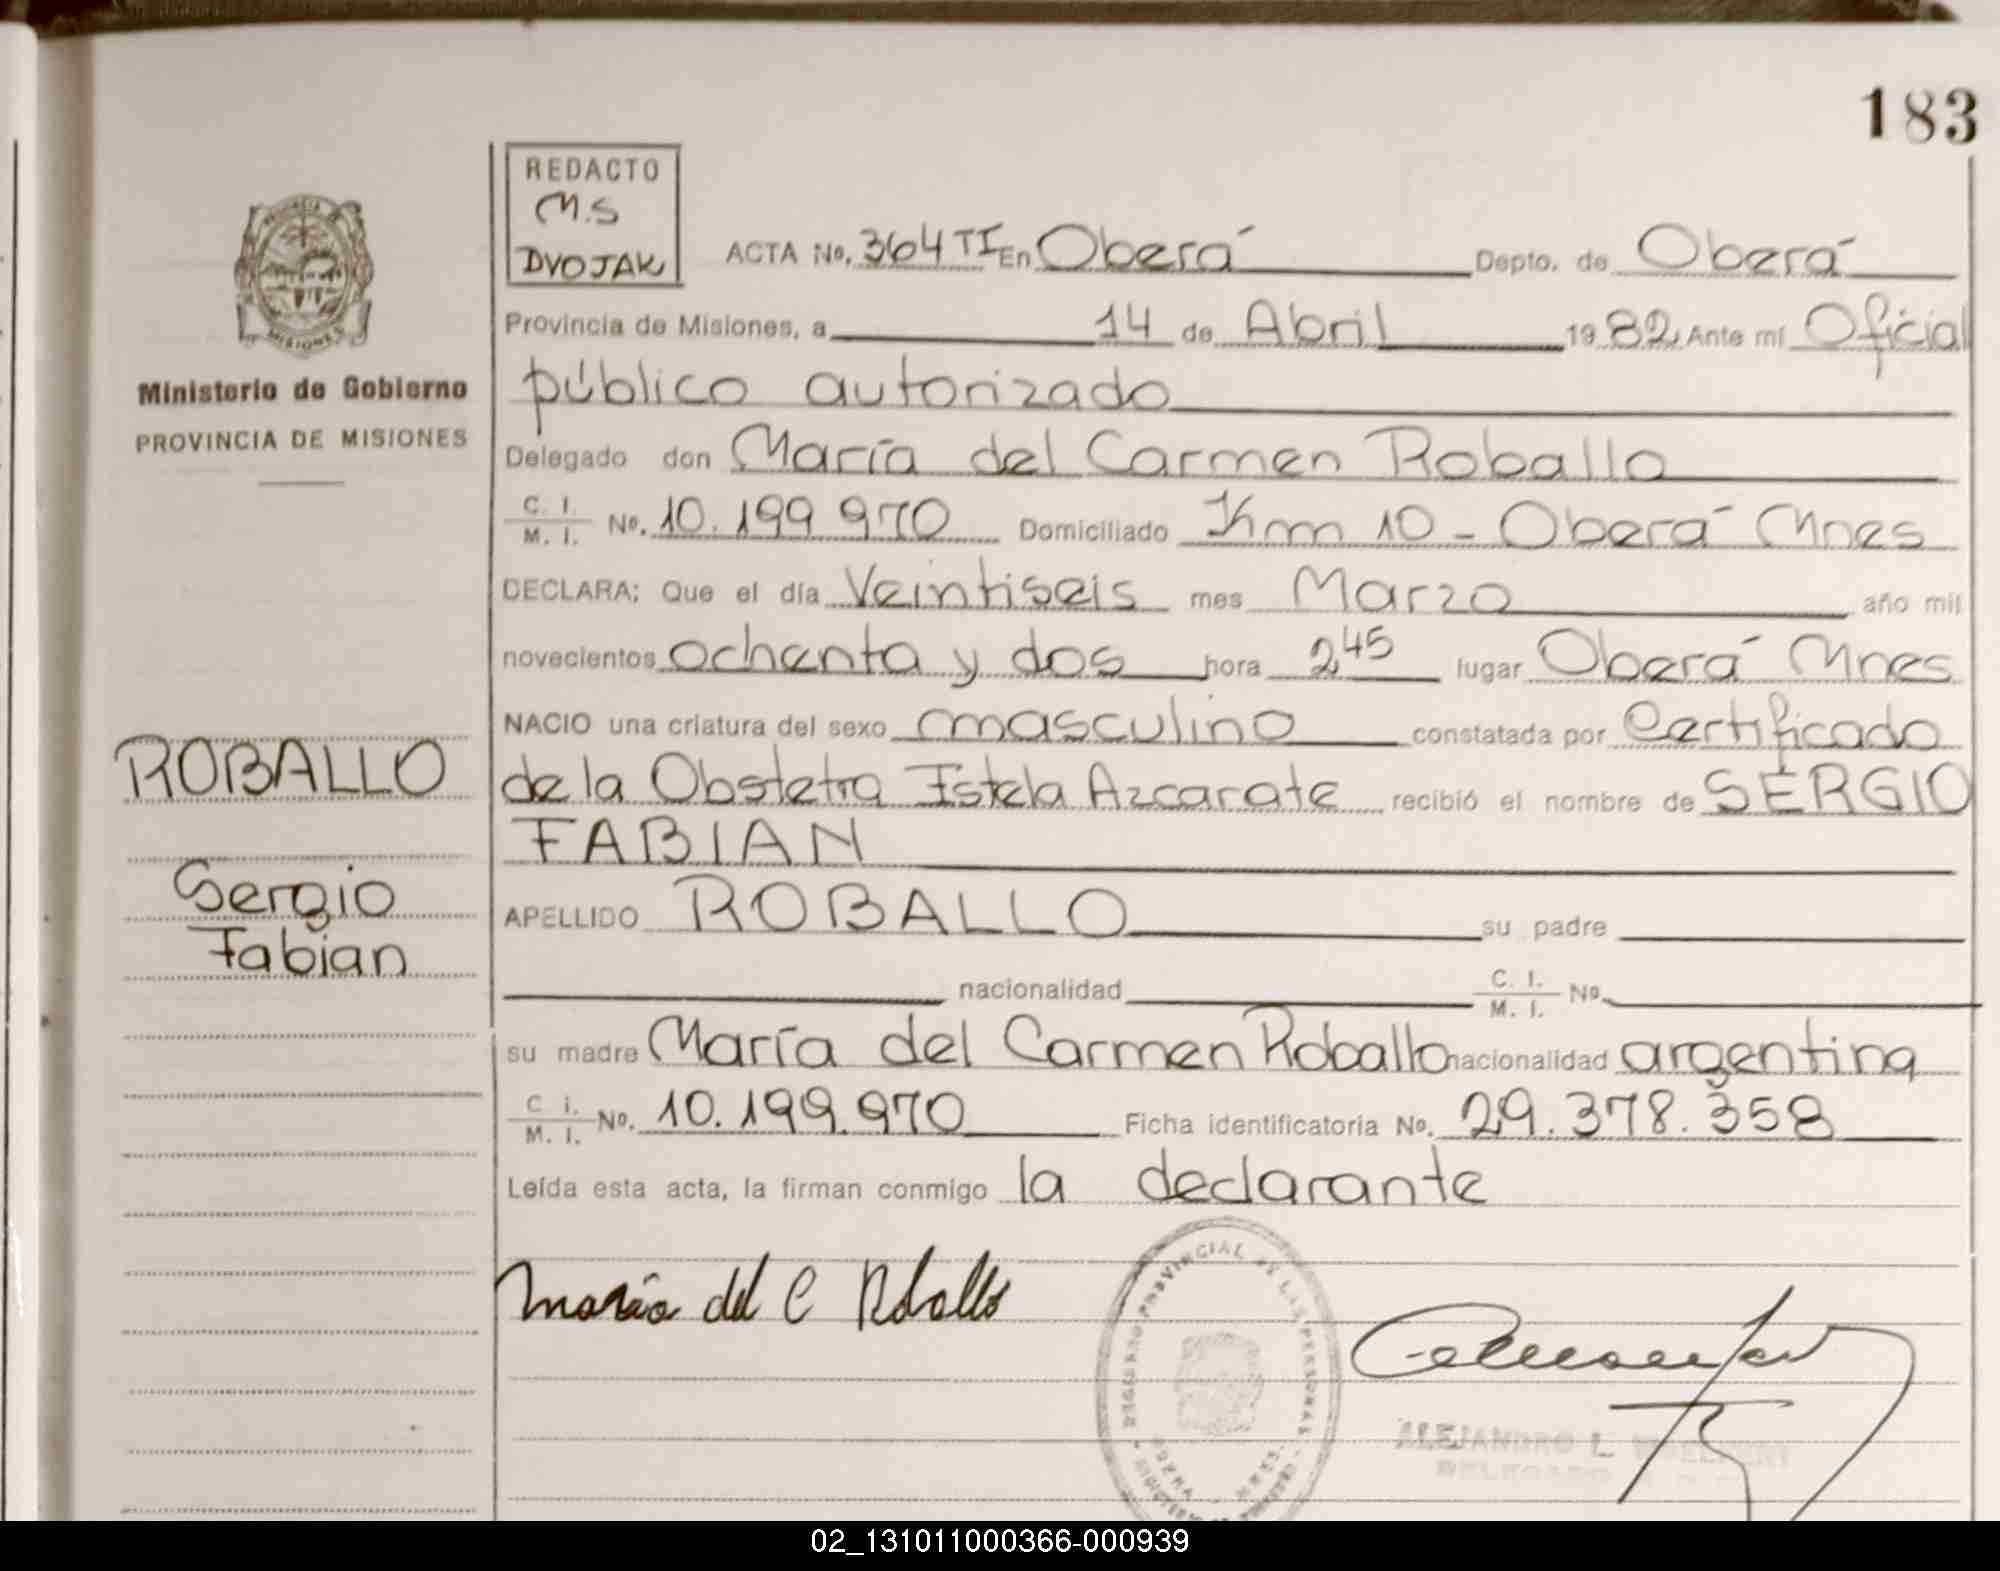 183
REDACTO
M.S
DVOJAK
ACTA No. 364 TI En Oberá Depto. de Oberá
Provincia de Misiones, a 14 de Abril 1982, Ante mí Oficial
público autorizado
Delegado don María del Carmen Roballo
C. I. / M. I. No. 10.199.970 Domiciliado Km 10 - Oberá Mnes
DECLARA: Que el día Veintiseis mes Marzo año mil
novecientos ochenta y dos hora 2,45 lugar Oberá Mnes
NACIO una criatura del sexo masculino constatada por Certificado
de la Obstetra Estela Azcarate recibió el nombre de SERGIO
FABIAN
APELLIDO ROBALLO su padre
nacionalidad C. I. / M. I. No.
su madre María del Carmen Roballo nacionalidad argentina
C. i. / M. I. No. 10.199.970 Ficha identificatoria No. 29.378.358
Leída esta acta, la firman conmigo la declarante
María del C Roballo
REGISTRO PROVINCIAL DE LAS PERSONAS
OBERA MNES.
ALEJANDRO L
DELEGADO
PROVINCIA DE
MISIONES
Ministerio de Gobierno
PROVINCIA DE MISIONES
ROBALLO
Sergio
Fabian
02_131011000366-000939